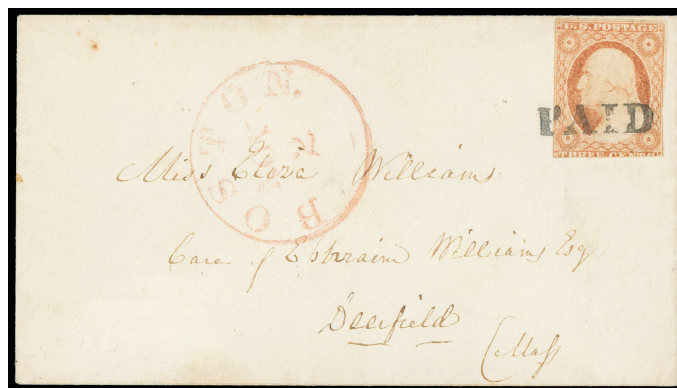 U.S. POSTAGE
PAID
THREE CENTS
BOSTON.
Miss Eliza Williams
Care of Ephraim Williams Esq.
Deerfield
Mass